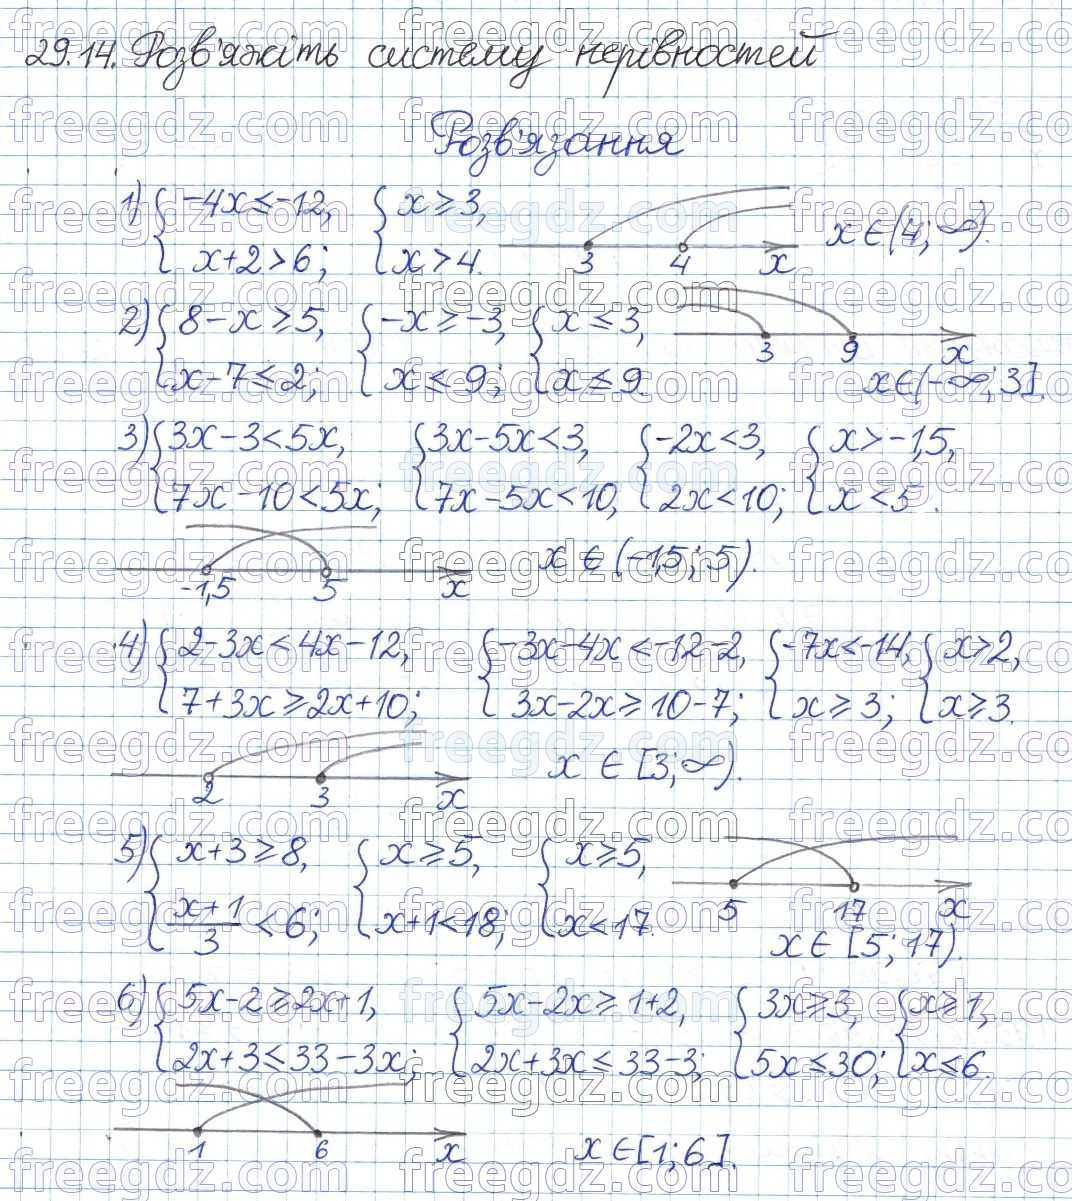 29.14. Розв'яжіть систему нерівностей
Розв'язання
1) { -4x ≤ -12, x + 2 > 6; { x ≥ 3, x > 4.
3 4 x x ∈ (4; ∞).
2) { 8 - x ≥ 5, x - 7 ≤ 2; { -x ≥ -3, x ≤ 9; { x ≤ 3, x ≤ 9.
3 9 x
x ∈ (-∞; 3].
3) { 3x - 3 < 5x, 7x - 10 < 5x; { 3x - 5x < 3, 7x - 5x < 10, { -2x < 3, 2x < 10; { x > -1,5, x < 5.
-1,5 5 x x ∈ (-1,5; 5).
4) { 2 - 3x < 4x - 12, 7 + 3x ≥ 2x + 10; { -3x - 4x < -12 - 2, 3x - 2x ≥ 10 - 7; { -7x < -14, x ≥ 3; { x > 2, x ≥ 3.
2 3 x x ∈ [3; ∞).
5) { x + 3 ≥ 8, (x + 1)/3 < 6; { x ≥ 5, x + 1 < 18; { x ≥ 5, x < 17.
5 17 x
x ∈ [5; 17).
6) { 5x - 2 ≥ 2x + 1, 2x + 3 ≤ 33 - 3x; { 5x - 2x ≥ 1 + 2, 2x + 3x ≤ 33 - 3; { 3x ≥ 3, 5x ≤ 30; { x ≥ 1, x ≤ 6.
1 6 x x ∈ [1; 6].
freegdz.com